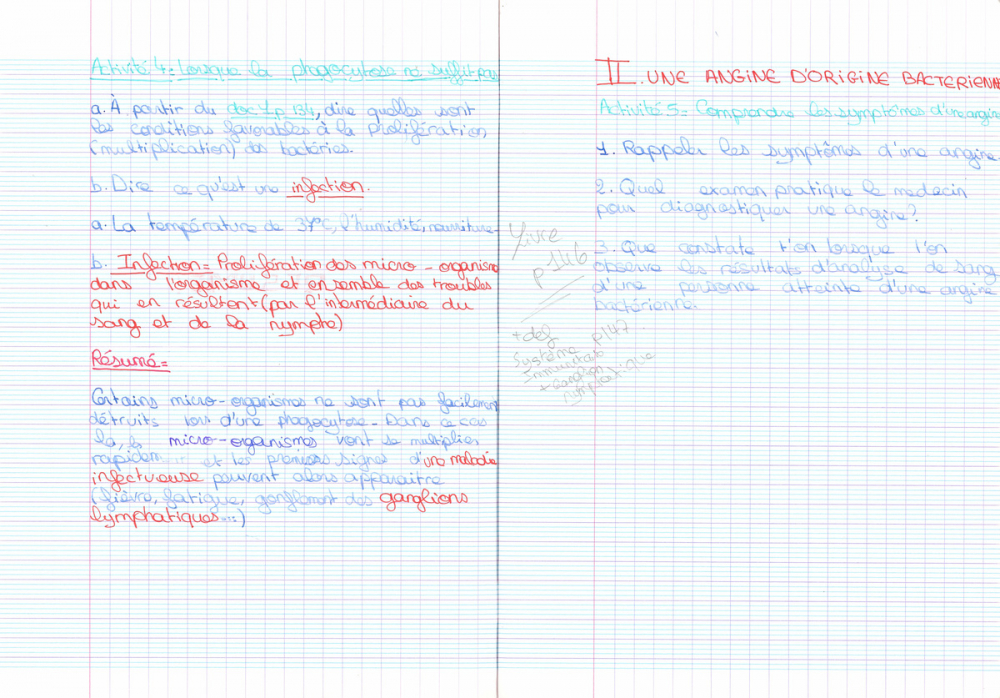 Activité 4 = Lorsque la phagocytose ne suffit pas
a. À partir du doc 4 p 134, dire quelles sont
les conditions favorables à la prolifération
(multiplication) des bactéries.
b. Dire ce qu'est une infection.
a. La température de 37°C, l'humidité, nourriture
b. Infection = Prolifération des micro-organisme
dans l'organisme et ensemble des troubles
qui en résultent (par l'intermédiaire du
sang et de la nymphe)
Résumé =
Certains micro-organismes ne sont pas facilement
détruits lors d'une phagocytose. Dans ce cas
là, les micro-organismes vont se multiplier
rapidem et les premiers signe d'une maladie
infectueuse peuvent alors apparaitre
(fièvre, fatigue, gonflement des ganglions
lymphatiques...)
Livre
p 146
+ def p 147
Système
Immunitaire
+ Ganglion
lymphatique
II. UNE ANGINE D'ORIGINE BACTERIENNE
Activité 5 = Comprendre les symptômes d'une angine
1. Rappeler les symptômes d'une angine.
2. Quel examen pratique le medecin
pour diagnostiquer une angine?
3. Que constate t'on lorsque l'on
observe les résultats d'analyse de sang
d'une personne atteinte d'une angine
bactérienne.